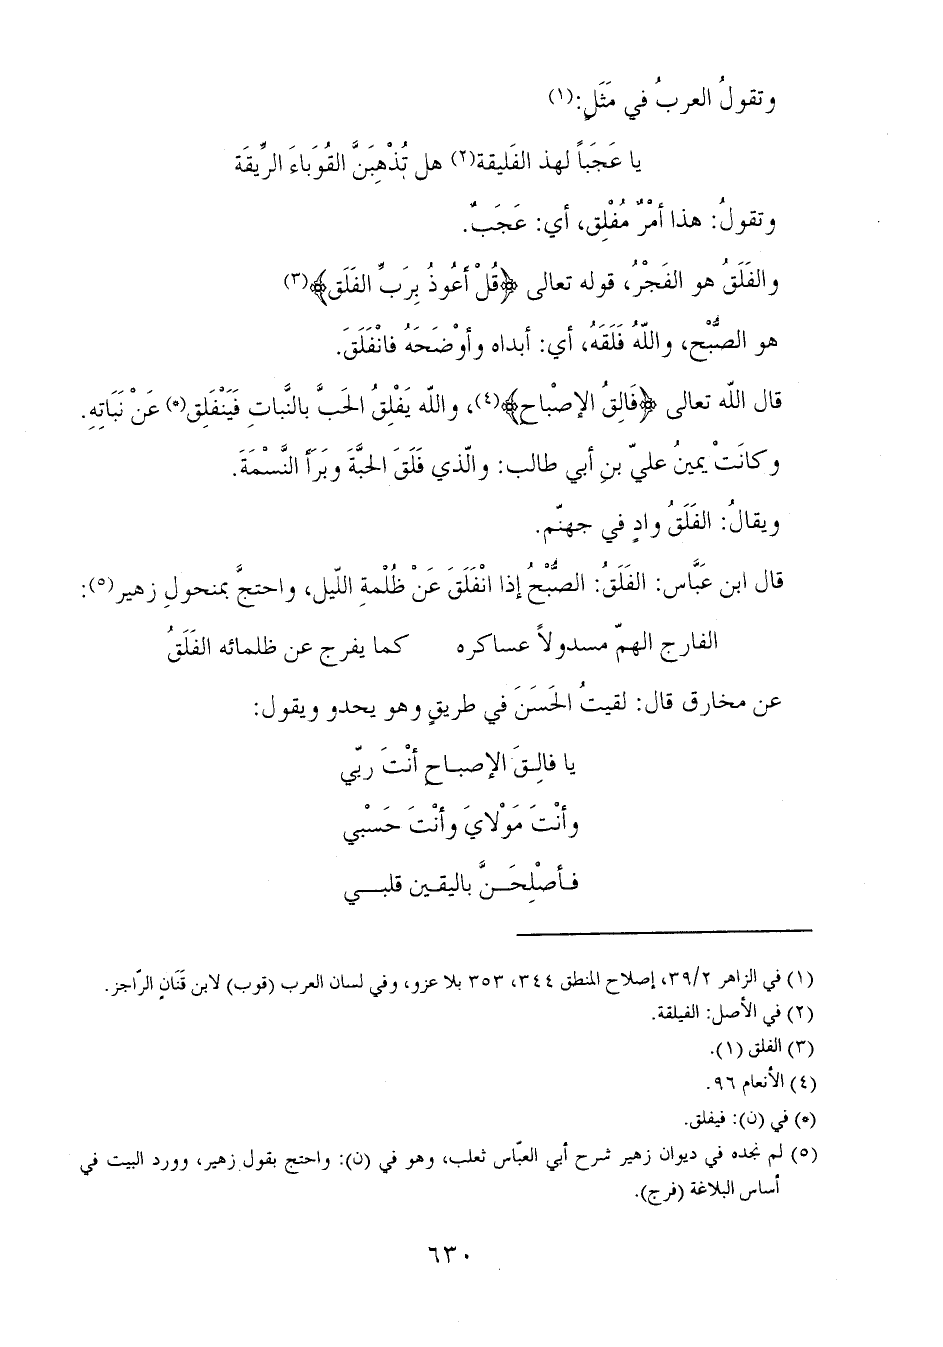 وتقولُ العربُ في مَثَلٍ:(١)
يا عَجَباً لهذ الفَليقة(٢) هل تُذْهِبَنَّ القُوَبَاءَ الرِّيقَة
وتقولُ: هذا أمْرٌ مُفْلِق، أي: عَجَبٌ.
والفَلَقُ هو الفَجْرُ، قوله تعالى ﴿قُلْ أَعُوذُ بِرَبِّ الفَلَقِ﴾(٣)
هو الصُّبْح، واللّهُ فَلَقَهُ، أي: أبداه وأوْضَحَهُ فانْفَلَقَ.
قال اللّه تعالى ﴿فَالِقُ الإصْباحِ﴾(٤)، واللّه يَفْلِقُ الحَبَّ بالنَّباتِ فَيَنْفَلِق(*) عَنْ نَبَاتِهِ.
وكانَتْ يمينُ عليّ بنِ أبي طالب: والّذي فَلَقَ الحَبَّةَ وبَرَأَ النَّسْمَةَ.
ويقالُ: الفَلَقُ وادٍ في جهنّم.
قال ابن عَبَّاس: الفَلَقُ: الصُّبْحُ إذا انْفَلَقَ عَنْ ظُلْمةِ اللّيل، واحتجَّ بمنحولِ زهير(٥):
الفارج الهمّ مسدولاً عساكره كما يفرج عن ظلمائه الفَلَقُ
عن مخارق قال: لقيتُ الحَسَنَ في طريقٍ وهو يحدو ويقول:
يا فالِقَ الإصباحِ أنْتَ ربّي
وأنْتَ مَوْلايَ وأنْتَ حَسْبي
فأصْلِحَنَّ باليقين قلبي
(١) في الزاهر ٣٩/٢، إصلاح المنطق ٣٤٤، ٣٥٣ بلا عزو، وفي لسان العرب (قوب) لابن قَنَانٍ الرّاجز.
(٢) في الأصل: الفيلقة.
(٣) الفلق (١).
(٤) الأنعام ٩٦.
(*) في (ن): فيفلق.
(٥) لم نجده في ديوان زهير شرح أبي العبّاس ثعلب، وهو في (ن): واحتج بقول زهير، وورد البيت في
أساس البلاغة (فرج).
٦٣٠